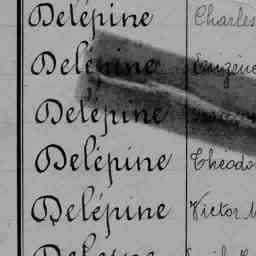 Delépine Charles
Delépine Eugène
Delépine
Delépine Théodo
Delépine Victor